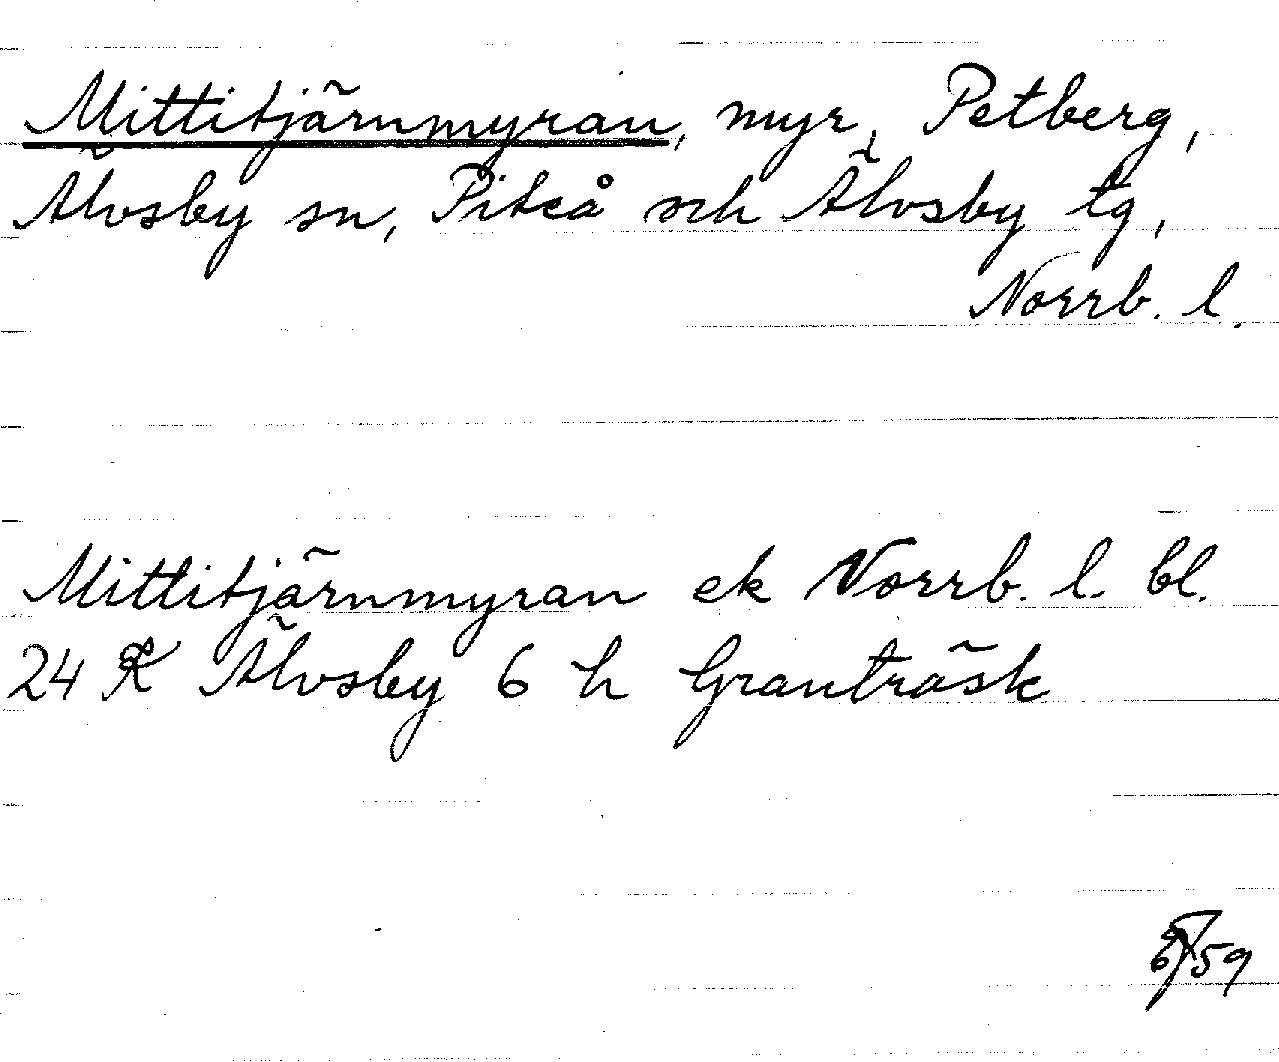 Mittitjärnmyran, myr, Petberg,
Älvsby sn, Piteå och Älvsby tg,
Norrb. l.
Mittitjärnmyran ek Norrb. l. bl.
24 K Älvsby 6 h Granträsk
59